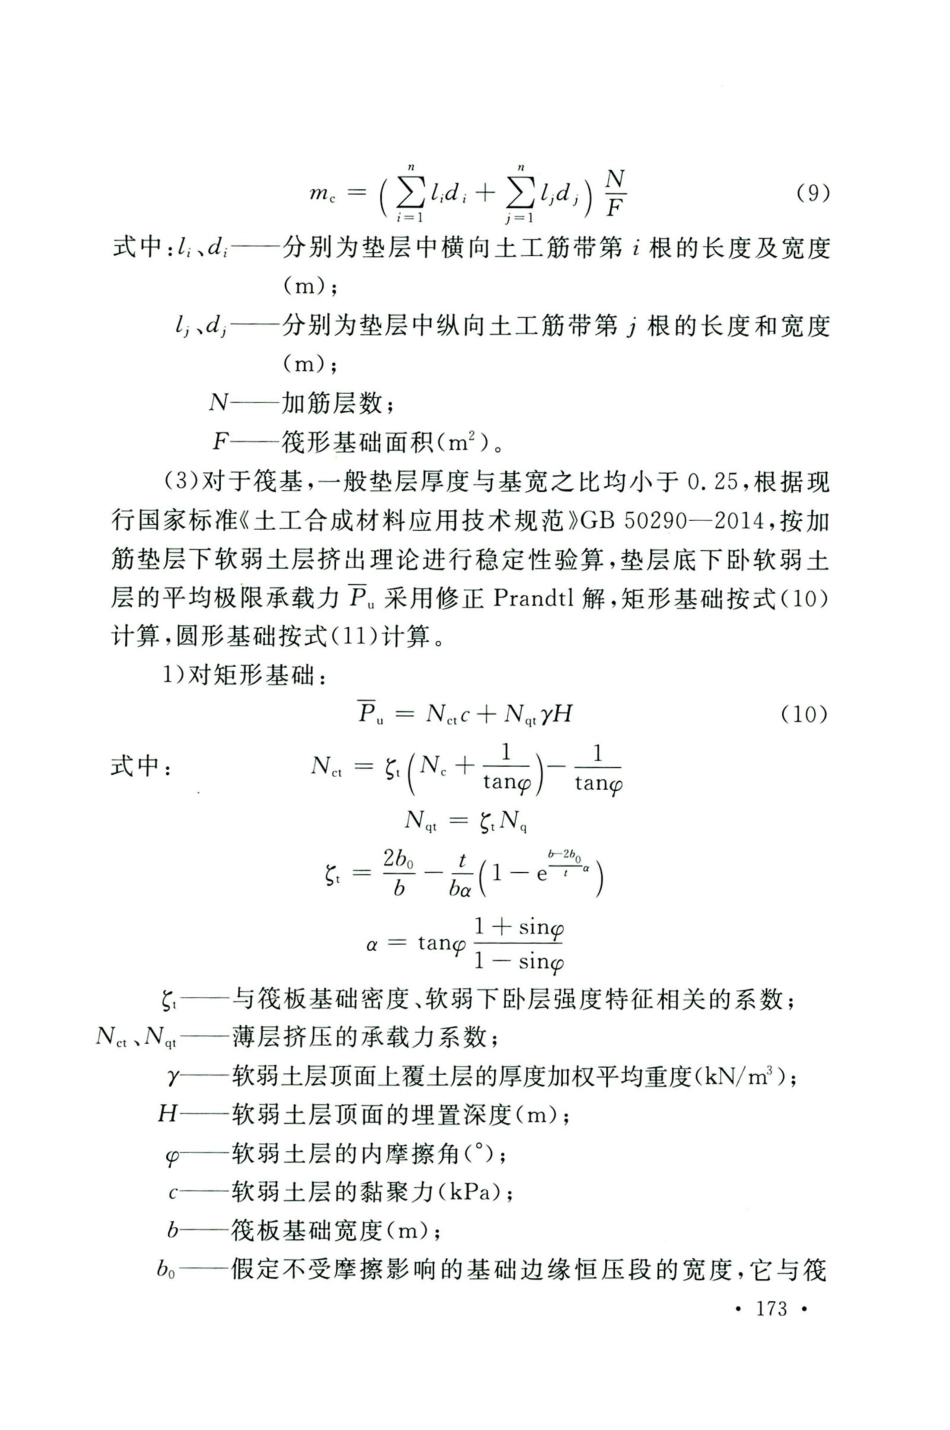 m_c = (∑_{i=1}^{n} l_i d_i + ∑_{j=1}^{n} l_j d_j) N/F (9)
式中:l_i、d_i——分别为垫层中横向土工筋带第 i 根的长度及宽度
(m);
l_j、d_j——分别为垫层中纵向土工筋带第 j 根的长度和宽度
(m);
N——加筋层数;
F——筏形基础面积(m²)。
(3)对于筏基,一般垫层厚度与基宽之比均小于 0.25,根据现
行国家标准《土工合成材料应用技术规范》GB 50290—2014,按加
筋垫层下软弱土层挤出理论进行稳定性验算,垫层底下卧软弱土
层的平均极限承载力 P̅_u 采用修正 Prandtl 解,矩形基础按式(10)
计算,圆形基础按式(11)计算。
1)对矩形基础:
P̅_u = N_ct c + N_qt γH (10)
式中: N_ct = ζ_t (N_c + 1/tanφ) − 1/tanφ
N_qt = ζ_t N_q
ζ_t = 2b_0/b − t/bα (1 − e^{(b−2b_0)/t α})
α = tanφ (1 + sinφ)/(1 − sinφ)
ζ_t——与筏板基础密度、软弱下卧层强度特征相关的系数;
N_ct、N_qt——薄层挤压的承载力系数;
γ——软弱土层顶面上覆土层的厚度加权平均重度(kN/m³);
H——软弱土层顶面的埋置深度(m);
φ——软弱土层的内摩擦角(°);
c——软弱土层的黏聚力(kPa);
b——筏板基础宽度(m);
b_0——假定不受摩擦影响的基础边缘恒压段的宽度,它与筏
• 173 •